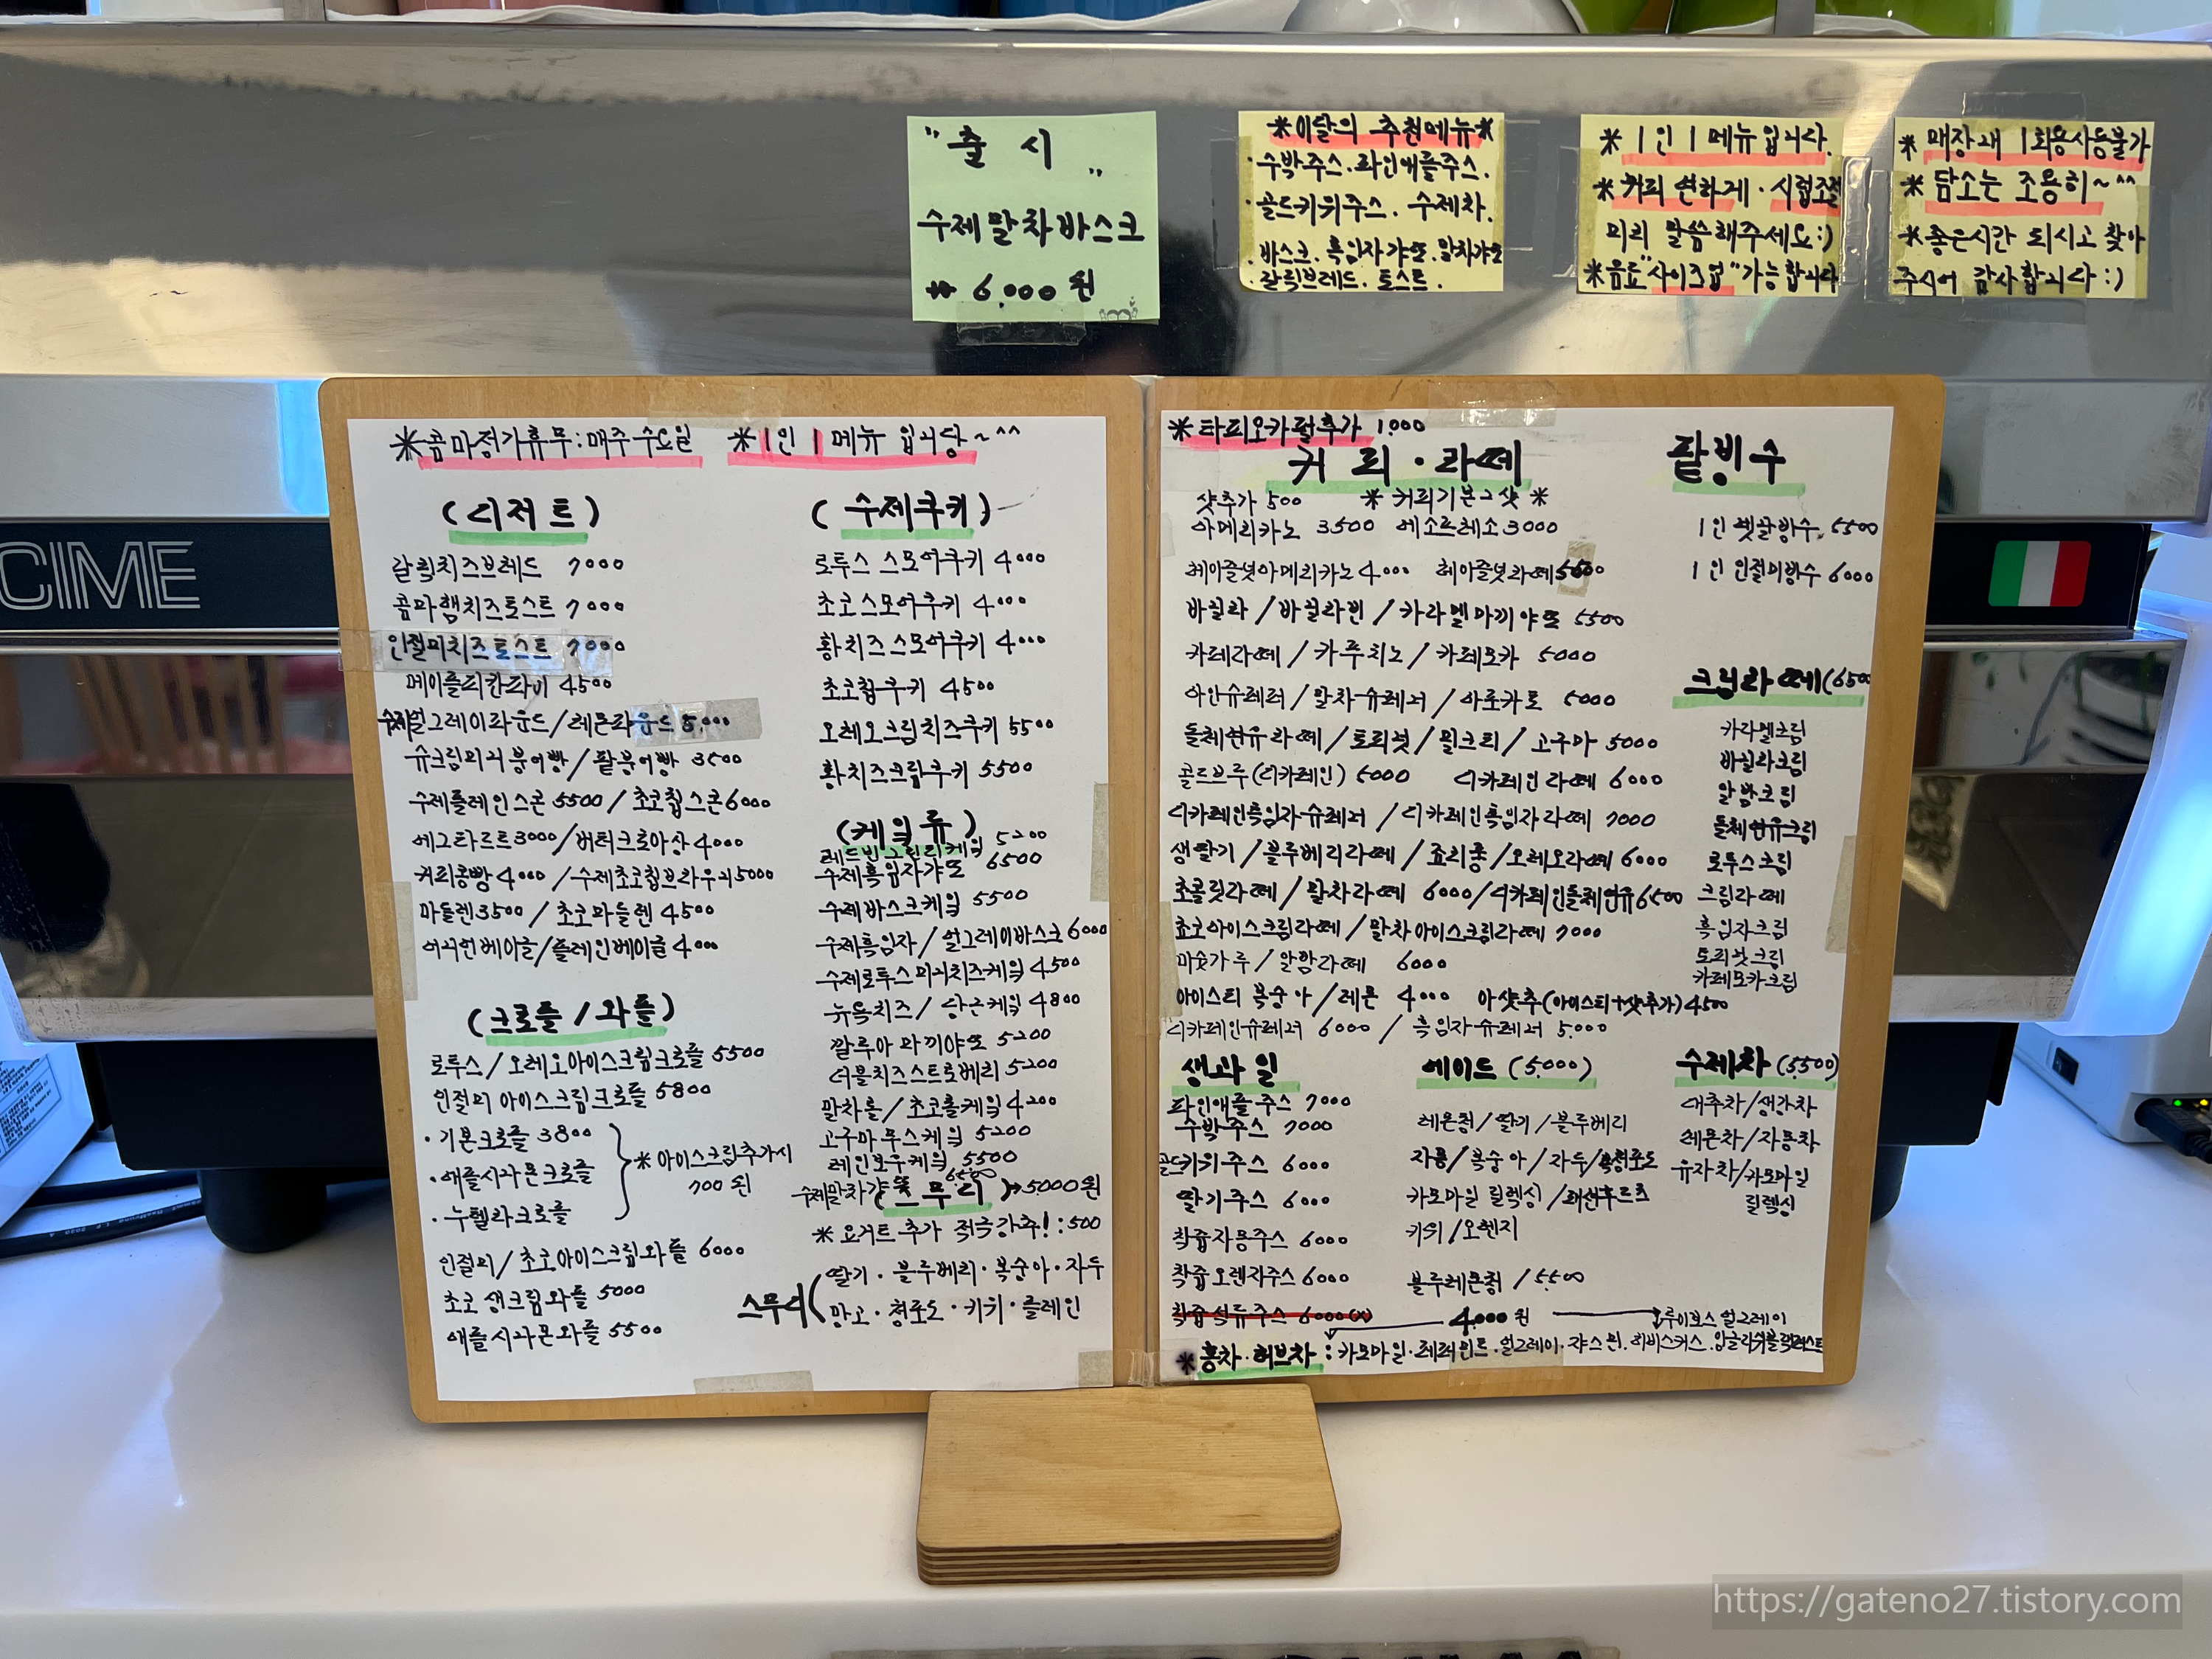 " 출 시 "
수제 말차바스크
** 6,000원
*이달의 추천메뉴*
·수박주스.파인애플주스.
·골드키위주스. 수제차.
·바스크. 흑임자갸또.말차갸또
·갈릭브레드. 토스트.
* 1인 1 메뉴입니다.
* 커피 연하게·시럽조절
미리 말씀해주세요:)
*음료"사이즈업"가능합니다
* 매장내 1회용사용불가
* 담소는 조용히~^^
*좋은시간 되시고 찾아
주시어 감사합니다:)
CIME
*콤마정기휴무:매주 수요일 *1인 1메뉴 입니당~^^
(디저트)
갈릭치즈브레드 7000
콤마햄치즈토스트 7000
인절미치즈토스트 7000
메이플피칸파이 4500
수제얼그레이파운드/레몬파운드 5,000
슈크림미니붕어빵/팥붕어빵 3500
수제플레인스콘 5500/초코칩스콘6000
에그타르트3000/버터크로아상4000
커피콩빵4000/수제초코칩브라우니5000
마들렌3500/초코마들렌4500
어니언베이글/플레인베이글4000
(크로플/와플)
로투스/오레오아이스크림크로플 5500
인절미 아이스크림크로플 5800
·기본크로플 3800
·애플시나몬크로플
·누텔라크로플
*아이스크림추가시
700원
인절미/초코아이스크림와플 6000
초코 생크림와플 5000
애플시나몬와플 5500
(수제쿠키)
로투스 스모어쿠키 4000
초코스모어쿠키 4000
황치즈스모어쿠키 4000
초코칩쿠키 4500
오레오크림치즈쿠키 5500
황치즈크림쿠키 5500
(케잌류)
레드빈그린티케잌 5200
수제흑임자갸또 6500
수제바스크케잌 5500
수제흑임자/얼그레이바스크6000
수제로투스미니치즈케잌 4500
뉴욕치즈/당근케잌 4800
깔루아마끼야또 5200
더블치즈스트로베리 5200
말차롤/초코롤케잌4200
고구마무스케잌 5200
레인보우케잌 5500
수제말차갸또 6500
(스무디)→5000원
*요거트추가 적극강추!:500
스무디(딸기·블루베리·복숭아·자두
망고·청포도·키위·플레인
*타피오카펄추가 1,000
커피·라떼
샷추가 500 *커피기본2샷*
아메리카노 3500 에스프레소3000
헤이즐넛아메리카노4000 헤이즐넛라떼5500
바닐라/바닐라빈/카라멜마끼야또 5500
카페라떼/카푸치노/카페모카 5000
아인슈페너/말차슈페너/아포카토 5000
돌체연유라떼/토피넛/밀크티/고구마 5000
콜드브루(디카페인) 5000 디카페인라떼 6000
디카페인흑임자슈페너/디카페인흑임자라떼 7000
생딸기/블루베리라떼/죠리퐁/오레오라떼 6000
초콜릿라떼/말차라떼 6000/디카페인돌체연유6500
쵸코아이스크림라떼/말차아이스크림라떼 7000
미숫가루/알밤라떼 6000
아이스티 복숭아/레몬 4000 아샷추(아이스티+샷추가)4500
디카페인슈페너 6000 / 흑임자슈페너 5,000
팥빙수
1인 옛날빙수 5500
1인 인절미빙수 6000
크림라떼(6500
카라멜크림
바닐라크림
알밤크림
돌체연유크림
로투스크림
크림라떼
흑임자크림
토피넛크림
카페모카크림
생과일
파인애플주스 7000
수박주스 7000
골드키위주스 6000
딸기주스 6000
착즙자몽주스 6000
착즙오렌지주스6000
착즙석류주스 6000(x)
에이드(5,000)
레몬청/딸기/블루베리
자몽/복숭아/자두/청포도
카모마일 릴렉싱/패션후르츠
키위/오렌지
블루레몬청/5500
수제차(5500)
대추차/생강차
레몬차/자몽차
유자차/카모마일
릴렉싱
4,000원 루이보스 얼그레이
*홍차·허브차:카모마일·페퍼민트·얼그레이·쟈스민·히비스커스·잉글리쉬블랙퍼스트
https://gateno27.tistory.com